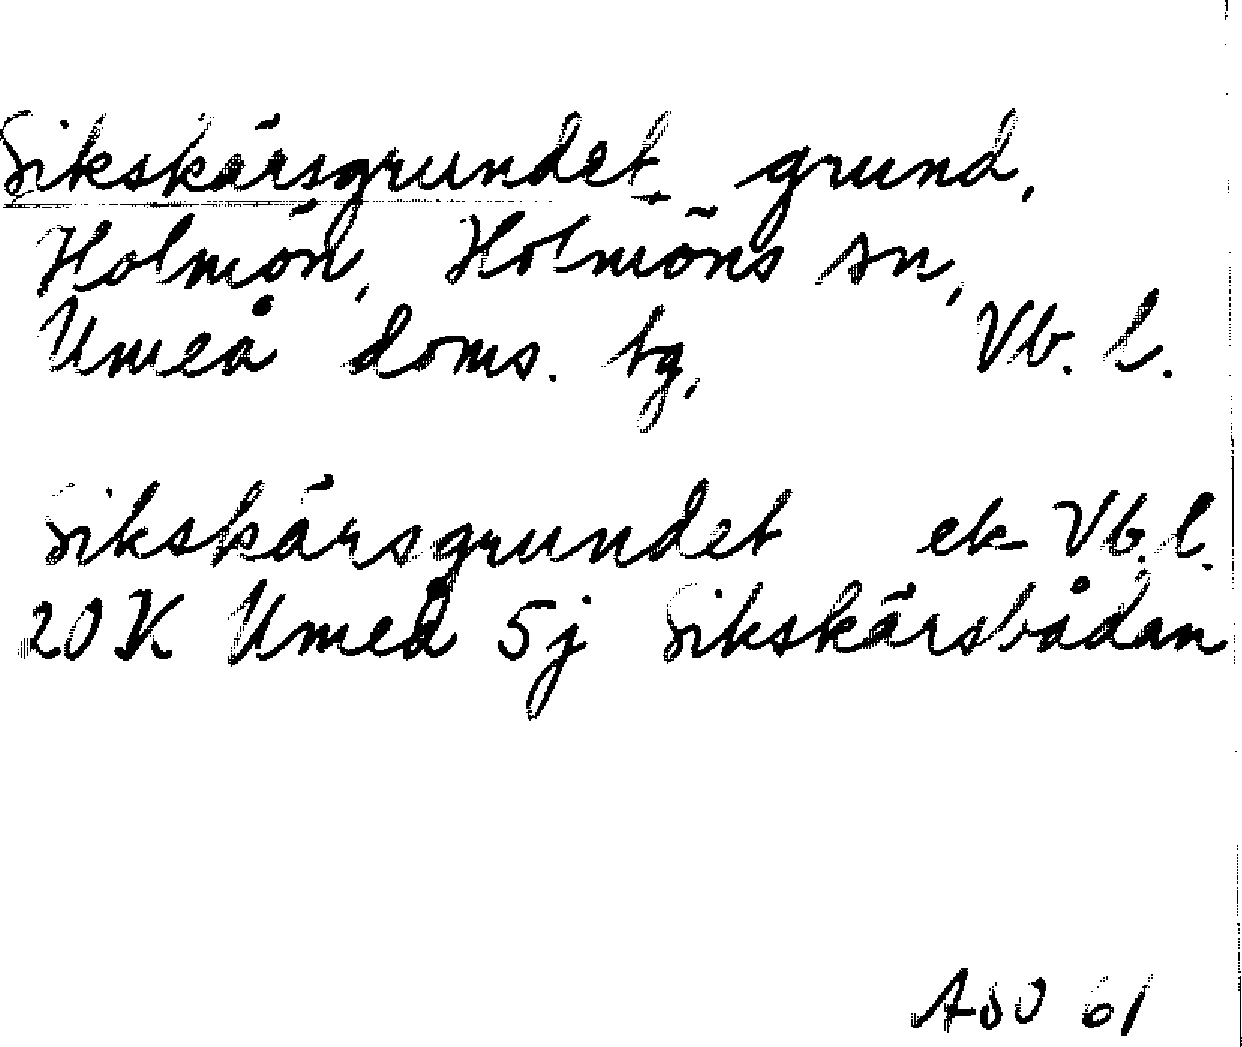 Sikskärsgrundet grund,
Holmön, Holmöns sn,
Umeå doms. tg, Vb. l.
Sikskärsgrundet ek Vb. l.
20 K Umeå 5j Sikskärsbådan
ASO 61